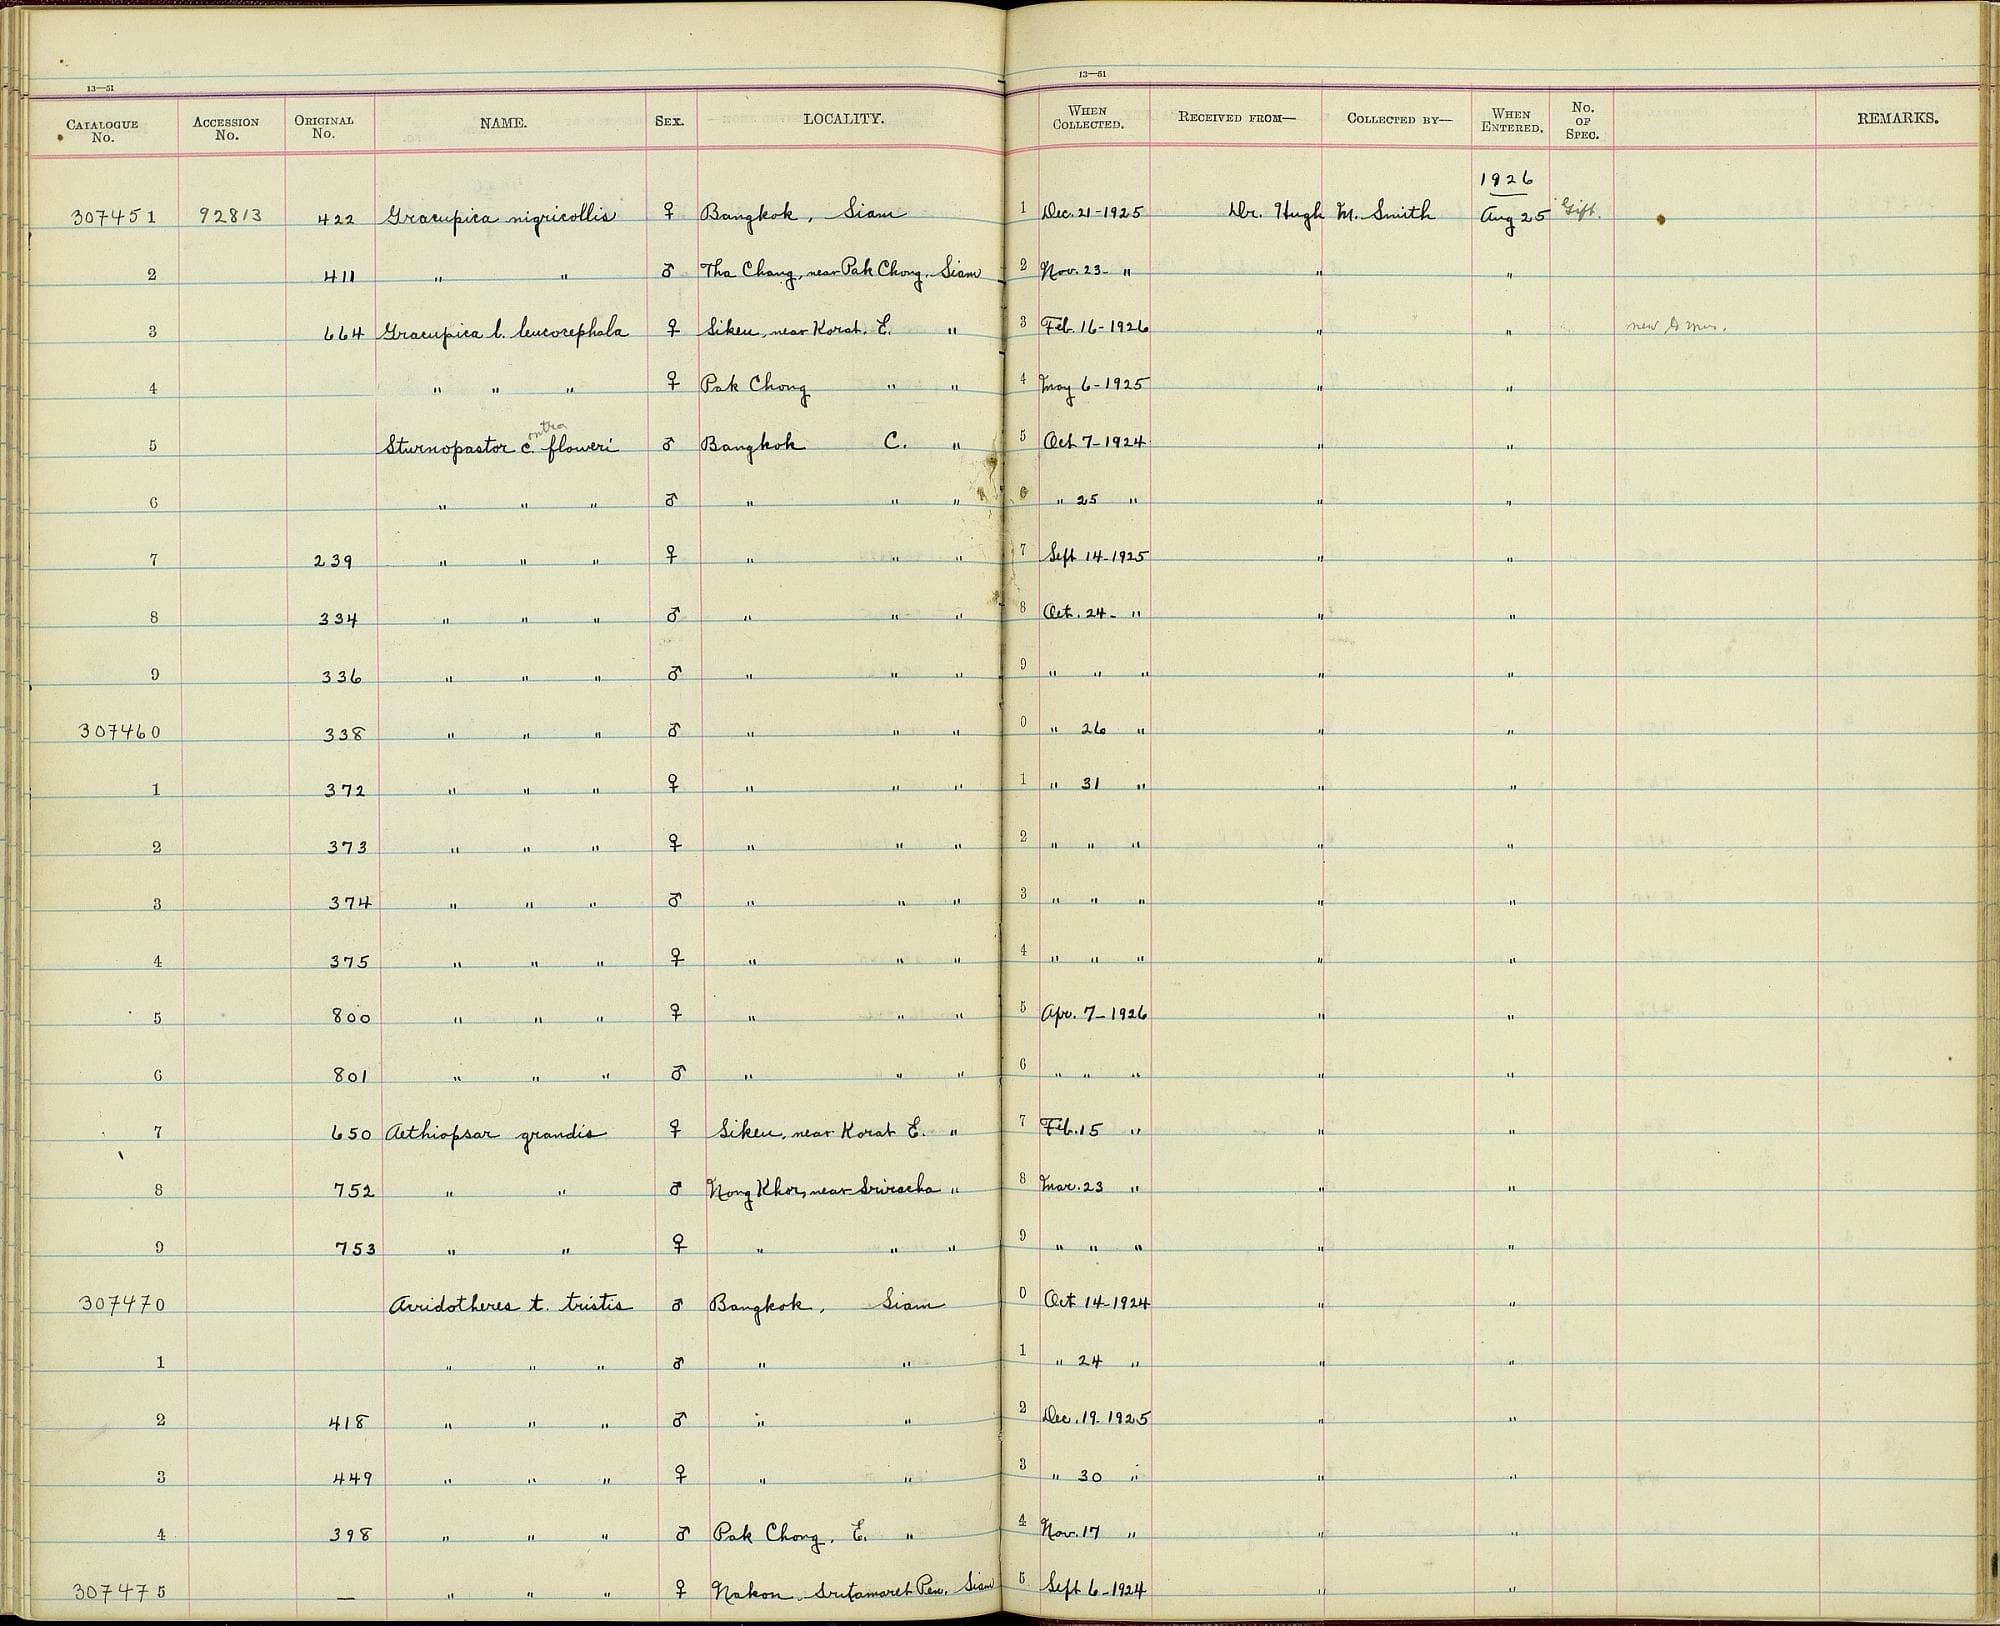 13—51 13—51
CATALOGUE No. ACCESSION No. ORIGINAL No. NAME. SEX. LOCALITY. WHEN COLLECTED. RECEIVED FROM— COLLECTED BY— WHEN ENTERED. No. OF SPEC. REMARKS.
1926
307451 92813 422 Gracupica nigricollis ♀ Bangkok, Siam 1 Dec. 21-1925 Dr. Hugh M. Smith Aug 25 Gift.
2 411 " " ♂ Tha Chang, near Pak Chong, Siam 2 Nov. 23- " " "
3 664 Gracupica l. leucocephala ♀ Sikeu, near Korat. E. " 3 Feb. 16-1926 " " new to mus.
4 " " " ♀ Pak Chong " " 4 May 6-1925 " "
5 Sturnopastor c.ontra floweri ♂ Bangkok C. " 5 Oct 7-1924 " "
6 " " " ♂ " " " 6 " 25 " " "
7 239 " " " ♀ " " " 7 Sept 14-1925 " "
8 334 " " " ♂ " " " 8 Oct. 24- " " "
9 336 " " " ♂ " " " 9 " " " " "
307460 338 " " " ♂ " " " 0 " 26 " " "
1 372 " " " ♀ " " " 1 " 31 " " "
2 373 " " " ♀ " " " 2 " " " " "
3 374 " " " ♂ " " " 3 " " " " "
4 375 " " " ♀ " " " 4 " " " " "
5 800 " " " ♀ " " " 5 Apr. 7-1926 " "
6 801 " " " ♂ " " " 6 " " " " "
7 650 Aethiopsar grandis ♀ Sikeu, near Korat E. " 7 Feb. 15 " " "
8 752 " " ♂ Nong Khor, near Sriracha " 8 Mar. 23 " " "
9 753 " " ♀ " " " 9 " " " " "
307470 Acridotheres t. tristis ♂ Bangkok, Siam 0 Oct 14-1924 " "
1 " " " ♂ " " 1 " 24 " " "
2 418 " " " ♂ " " 2 Dec. 19-1925 " "
3 449 " " " ♀ " " 3 " 30 " " "
4 398 " " " ♂ Pak Chong, E. " 4 Nov. 17 " " "
307475 — " " " ♀ Nakon Sritamarat Pen. Siam 5 Sept 6-1924 " "